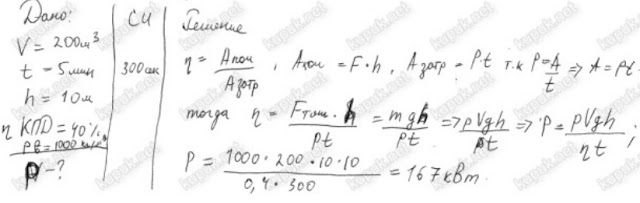 Дано:
V = 200 м³
t = 5 мин
h = 10 м
η КПД = 40%
ρв = 1000
P - ?
СИ
300 сек
Решение
η = Aпол / Aзатр, Aпол = F · h, Aзатр = P · t т.к P = A / t ⇒ A = Pt.
тогда η = Fтяж · h / pt = mgh / pt ⇒ ρVgh / pt ⇒ P = ρVgh / ηt;
P = 1000 · 200 · 10 · 10 / 0,4 · 300 = 167 кВт.